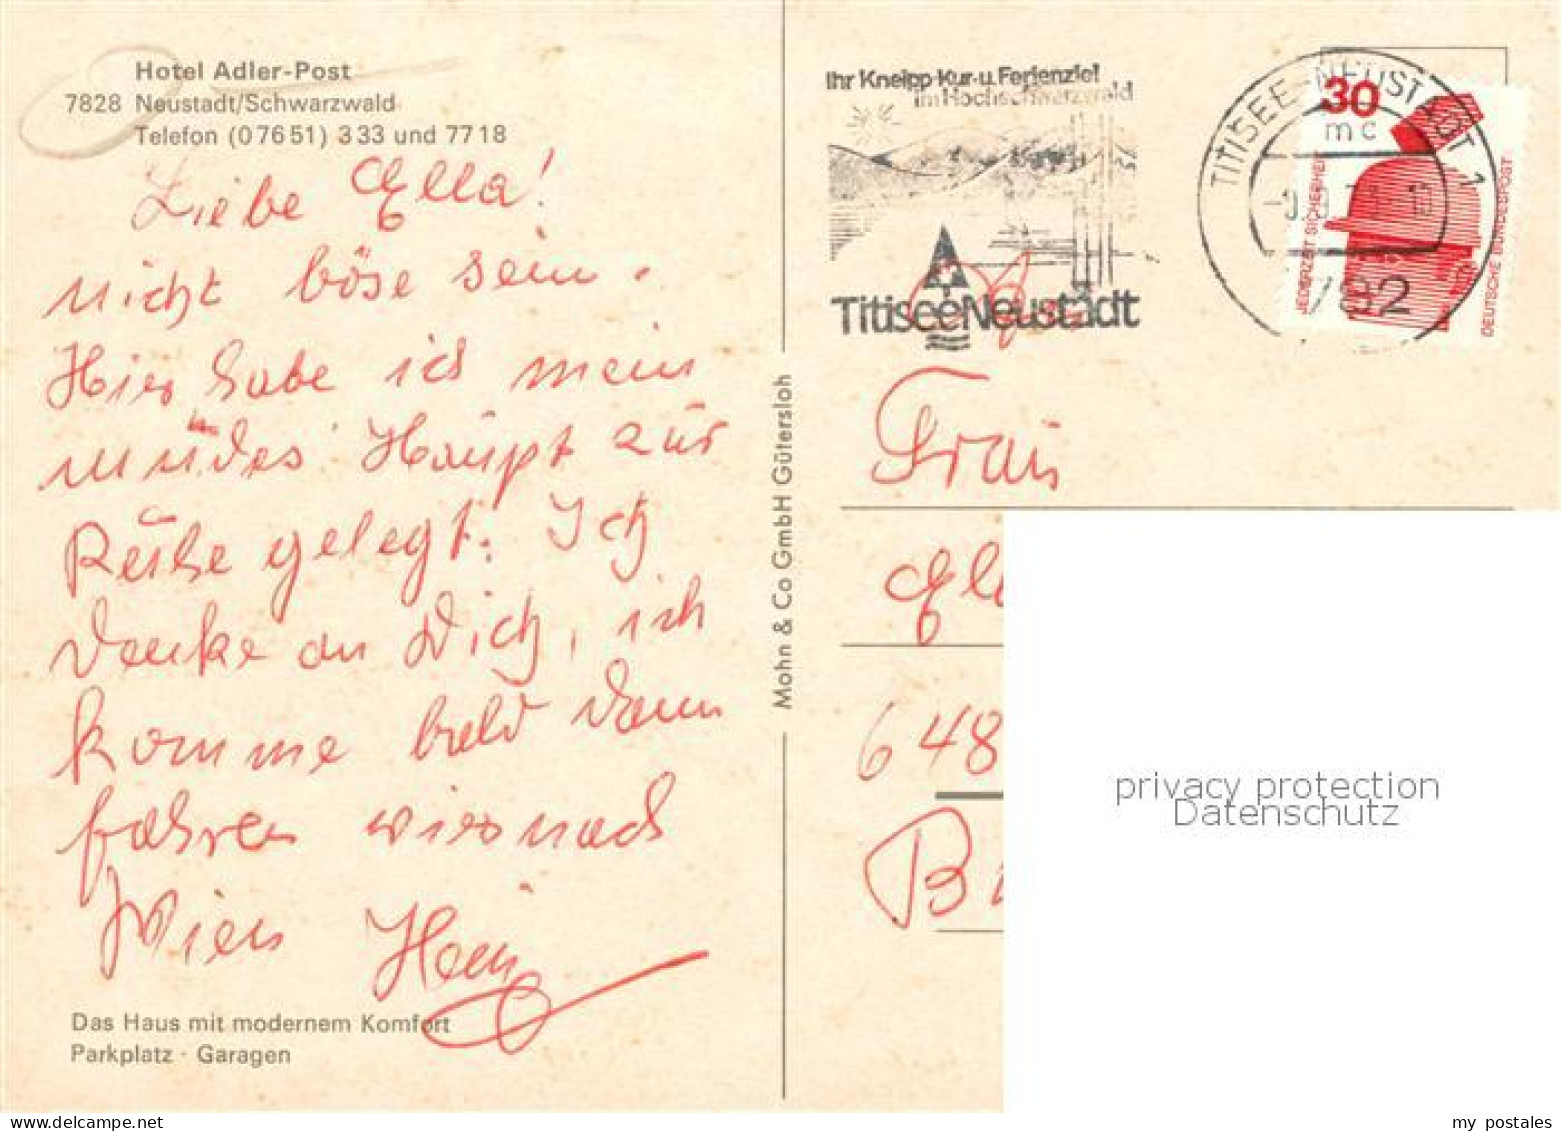 Hotel Adler-Post
7828 Neustadt/Schwarzwald
Telefon (07651) 333 und 7718
Liebe Ella!
nicht böse sein.
Hier habe ich mein
müdes Haupt zur
Ruhe gelegt. Ich
denke an Dich, ich
komme bald dann
fahren wir nach
Wien Hein
Das Haus mit modernem Komfort
Parkplatz · Garagen
Mohn & Co GmbH Gütersloh
Ihr Kneipp-Kur-u. Ferienziel
im Hochschwarzwald
Titisee Neustadt
TITISEE-NEUSTADT 1
mc
792
30
JEDERZEIT SICHERHEIT
DEUTSCHE BUNDESPOST
Frau
Ell
648
B
privacy protection
Datenschutz
www.delcampe.net
my_postales